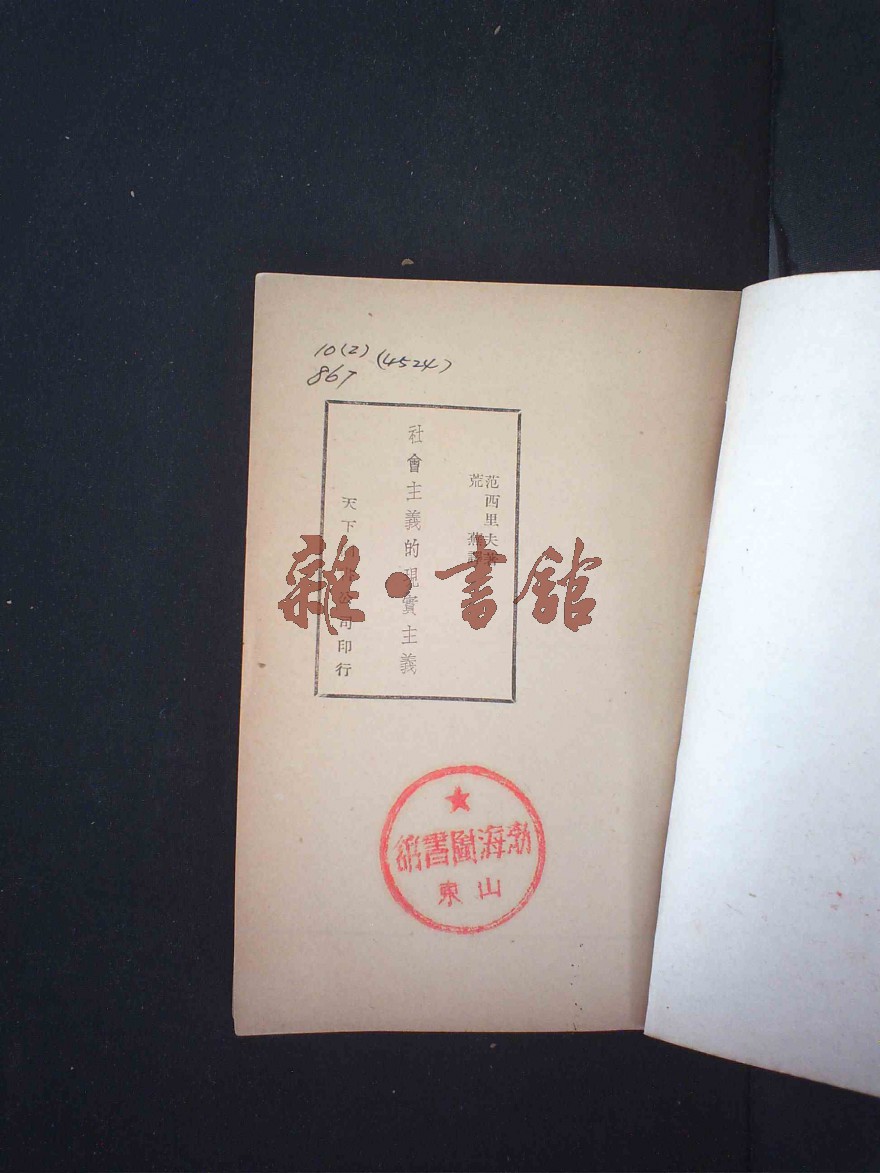 10(2) (4524)
867
范西里夫著
荒蕪譯
社會主義的現實主義
天下公司印行
雜·書館
渤海圖書館
山東